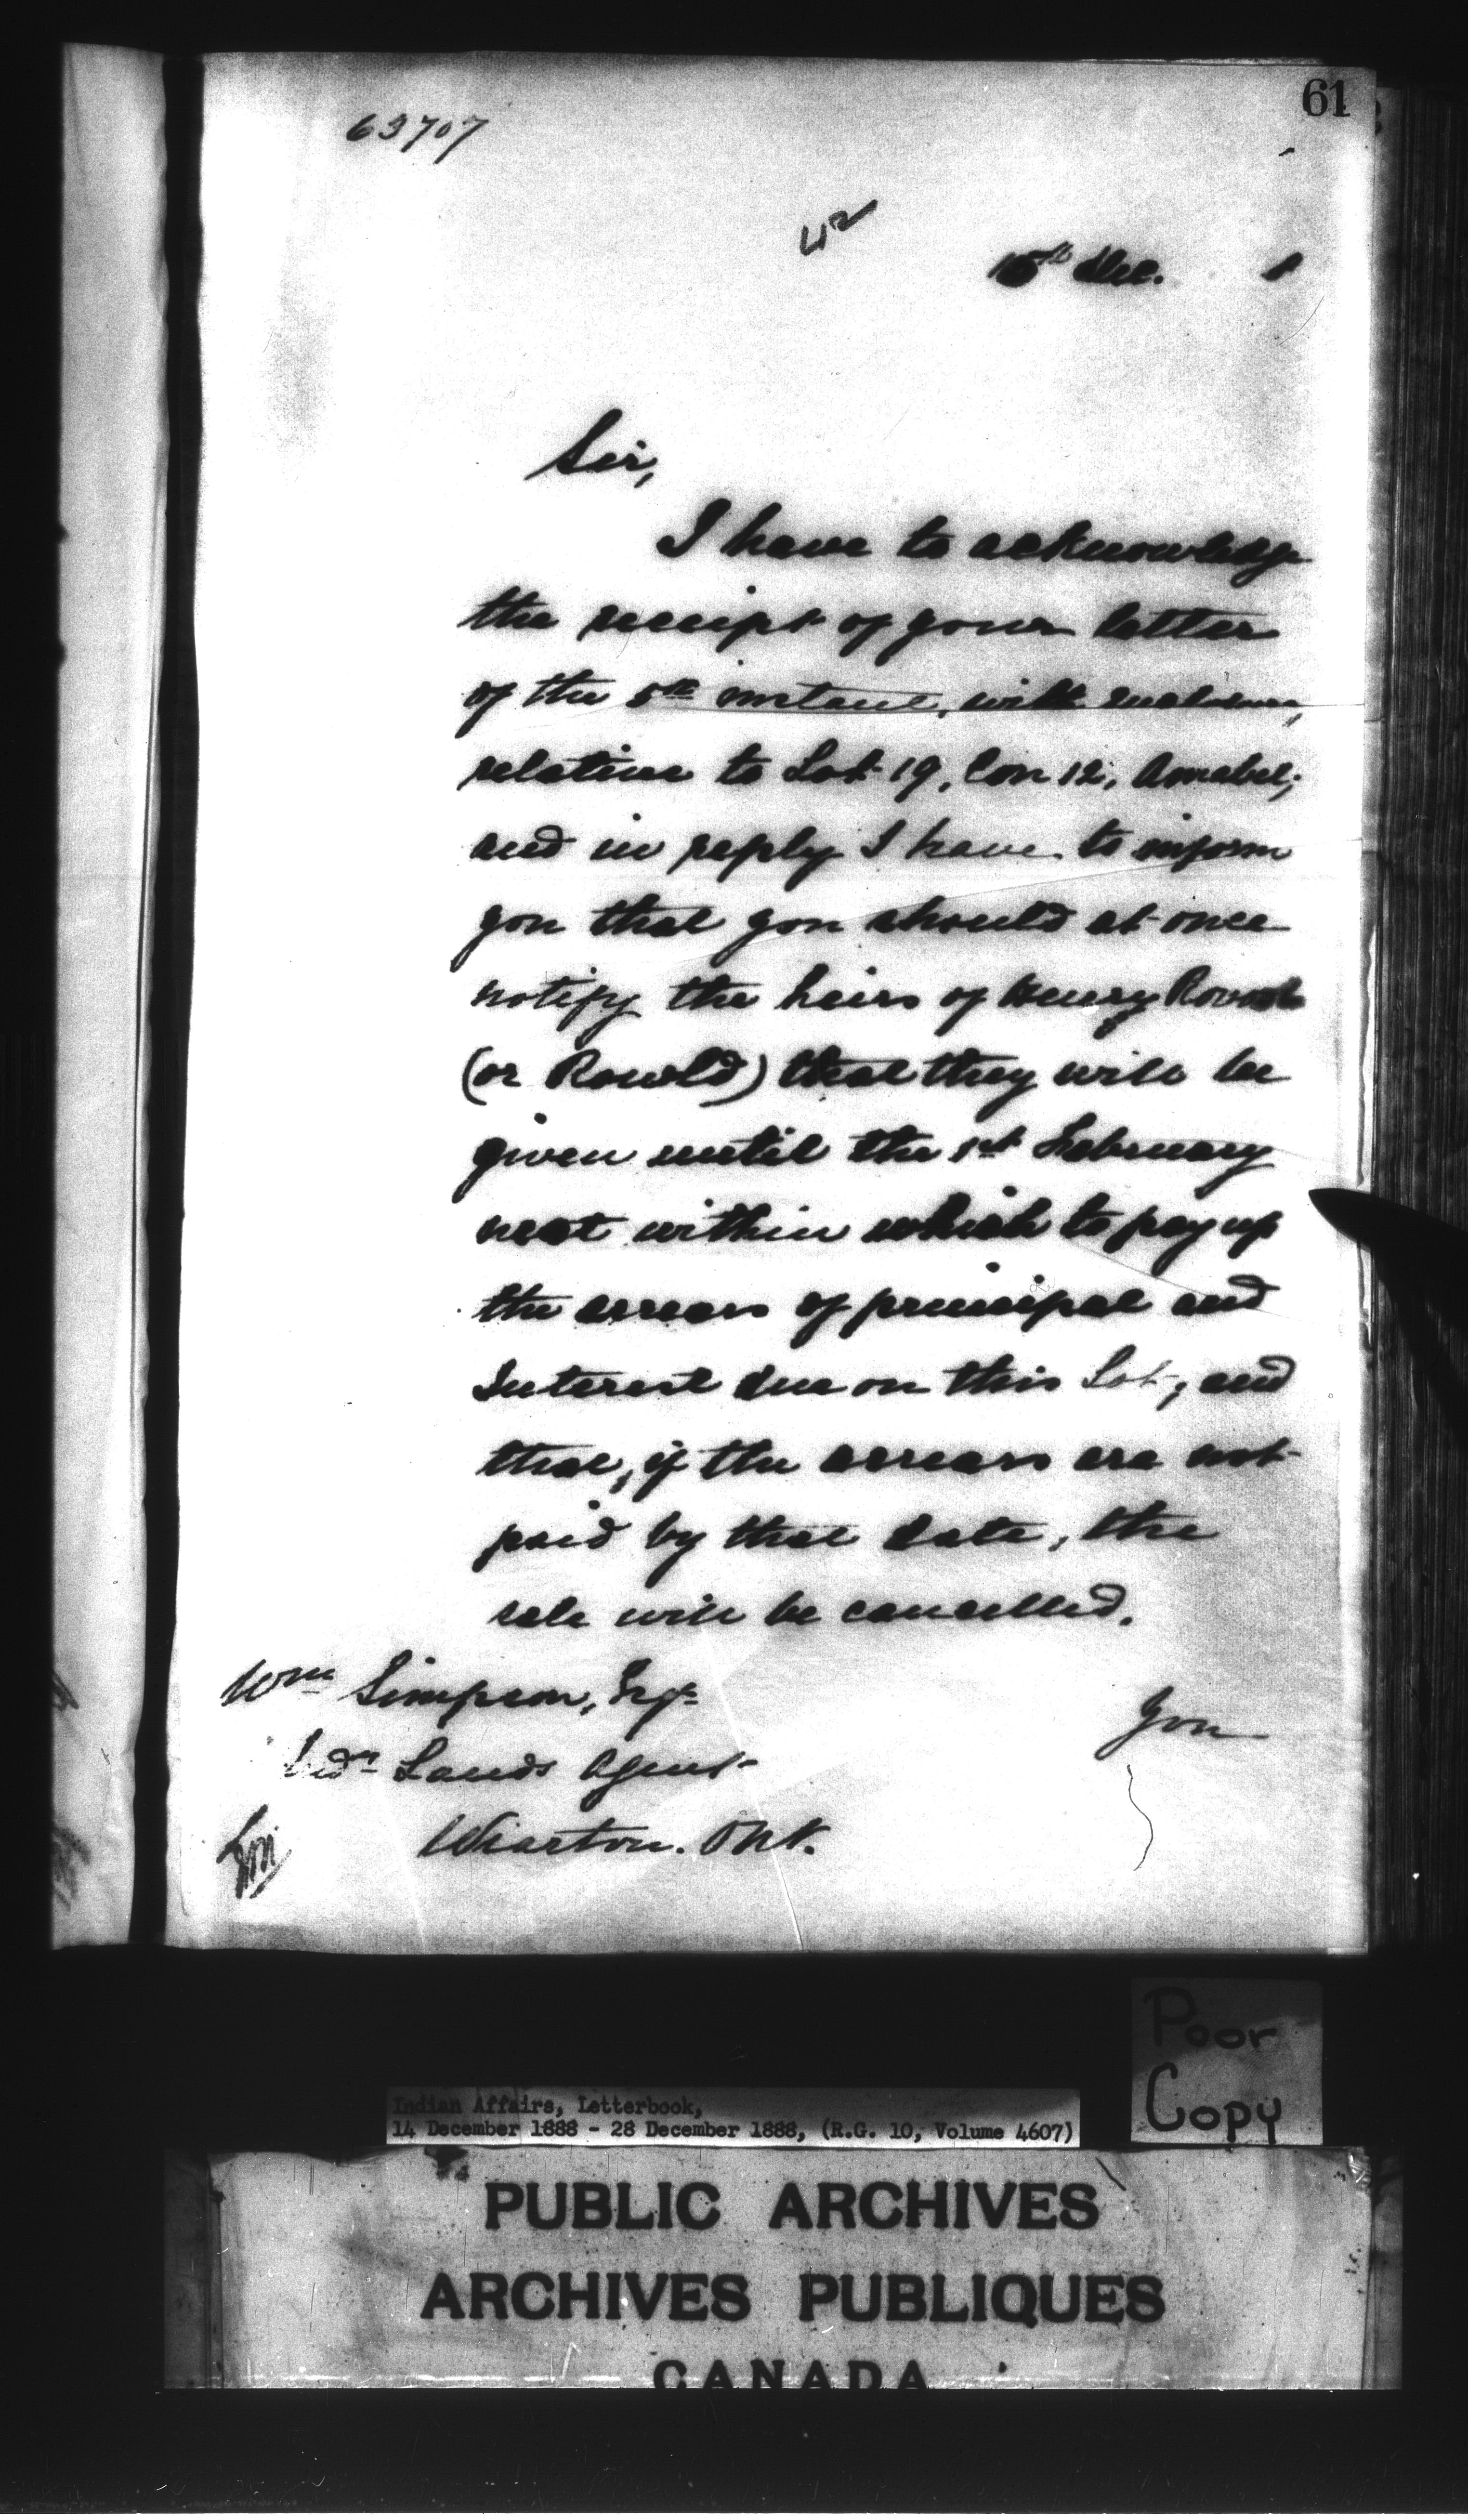 61
63707
15th Dec. 8
Sir,
I have to acknowledge
the receipt of your letter
of the 5th instant, with enclosures,
relative to Lot 19, Con 12, Amabel;
and in reply I have to inform
you that you should at once
notify the heirs of Henry
(or Rowld) that they will be
given until the 1st February
next within which to pay up
the arrears of principal and
Interest due on this Lot; and
that, if the arrears are not
paid by that date, the
sale will be cancelled.
Wm Simpson, Esqr
Indn Lands Agent
Wiarton. Ont.
You
Poor
Copy
Indian Affairs, Letterbook,
14 December 1888 - 28 December 1888, (R.G. 10, Volume 4607)
PUBLIC ARCHIVES
ARCHIVES PUBLIQUES
CANADA